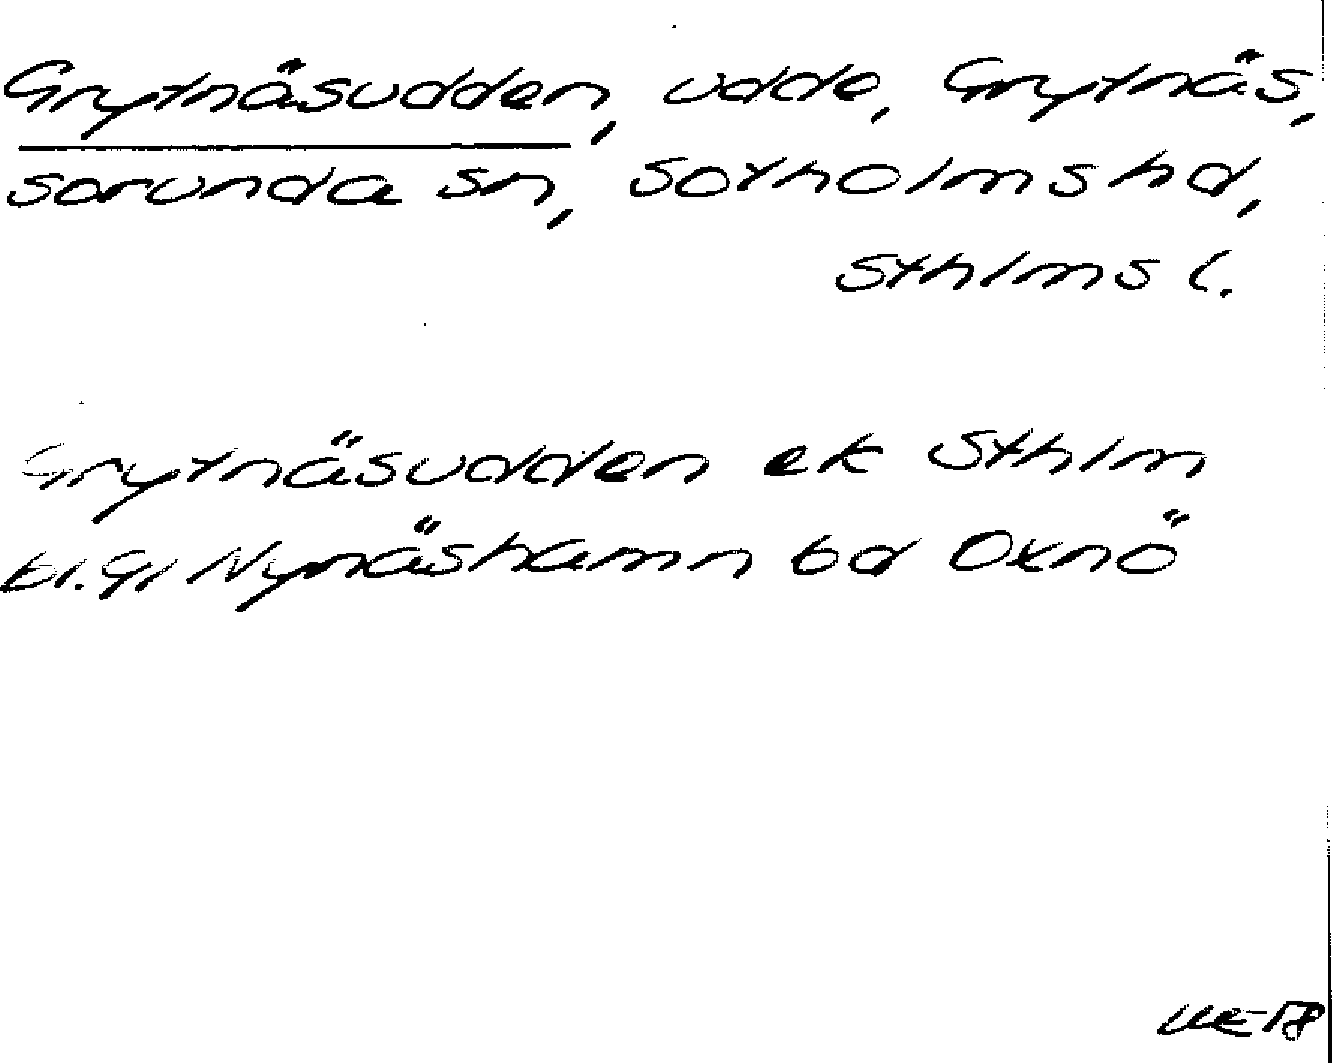 Grytnäsudden, udde, Grytnäs,
Sorunda sn, Sotholms hd,
Sthlms l.
Grytnäsudden ek Sthlm
bl. 91 Nynäshamn bd Oxnö